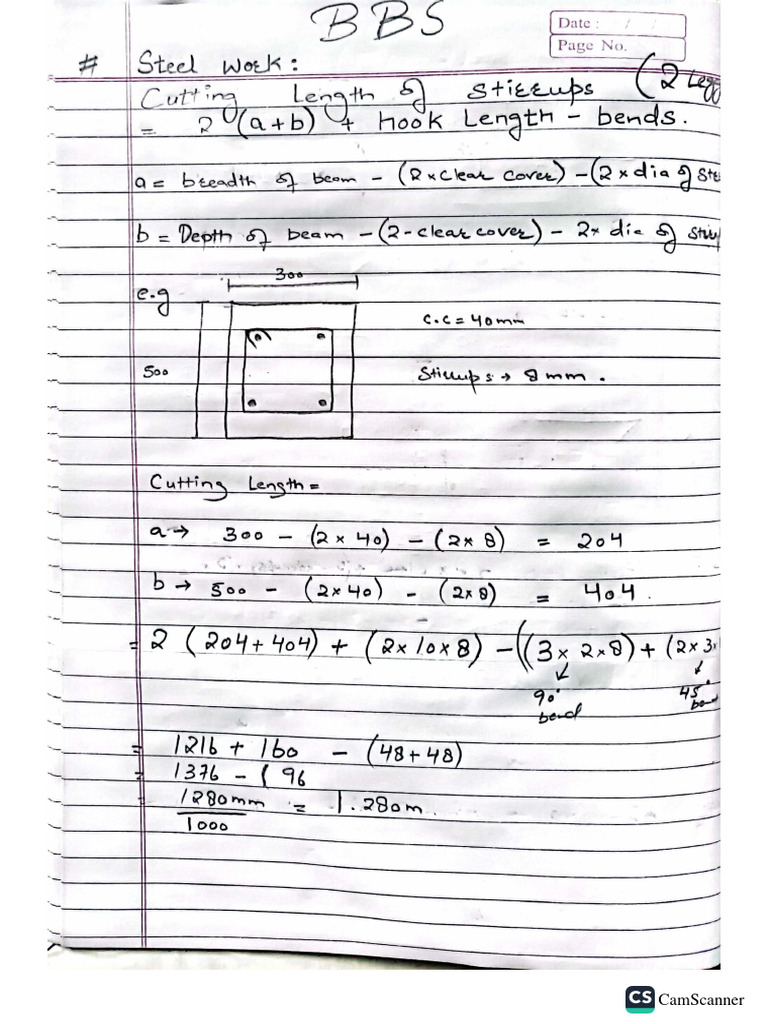 BBS
Date : / /
Page No.
# Steel work :
Cutting Length of Stirrups (2 Legg
= 2 (a+b) + hook Length - bends.
a = breadth of beam - (2×clear cover) - (2×dia of Sti
b = Depth of beam - (2-clear cover) - 2× dia of stirr
300
e.g
c.c = 40mm
500
Stirrups → 8 mm .
Cutting Length =
a → 300 - (2 × 40) - (2× 8) = 204
b → 500 - (2×40) - (2×8) = 404 .
= 2 (204+404) + (2×10×8) - ((3× 2×8) + (2×3×
90° bend
45° bend
= 1216 + 160 - (48+48)
= 1376 - ( 96
1280mm = 1.280m.
1000
CS CamScanner